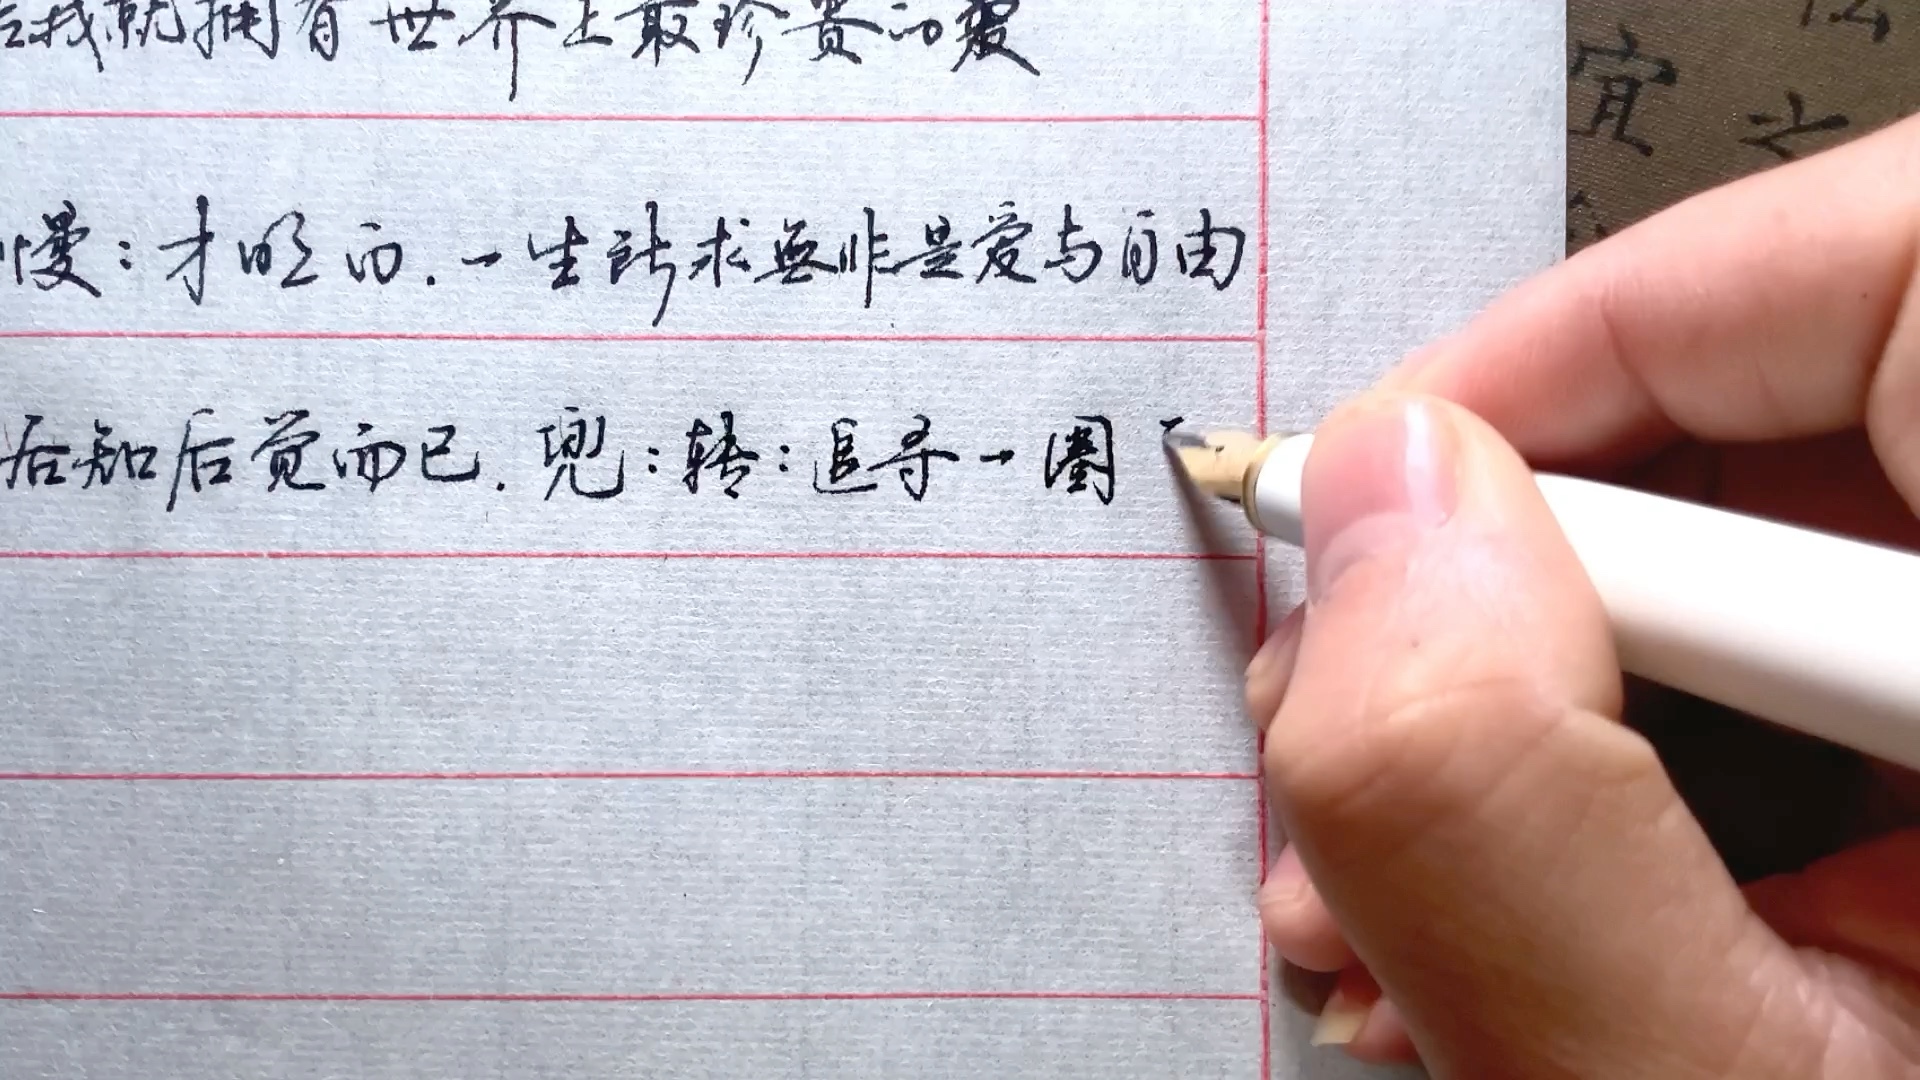 我就拥有世界上最珍贵的爱
慢:才明白.一生所求無非是爱与自由
后知后觉而已.兜:转:追寻一圈
宜
之
法